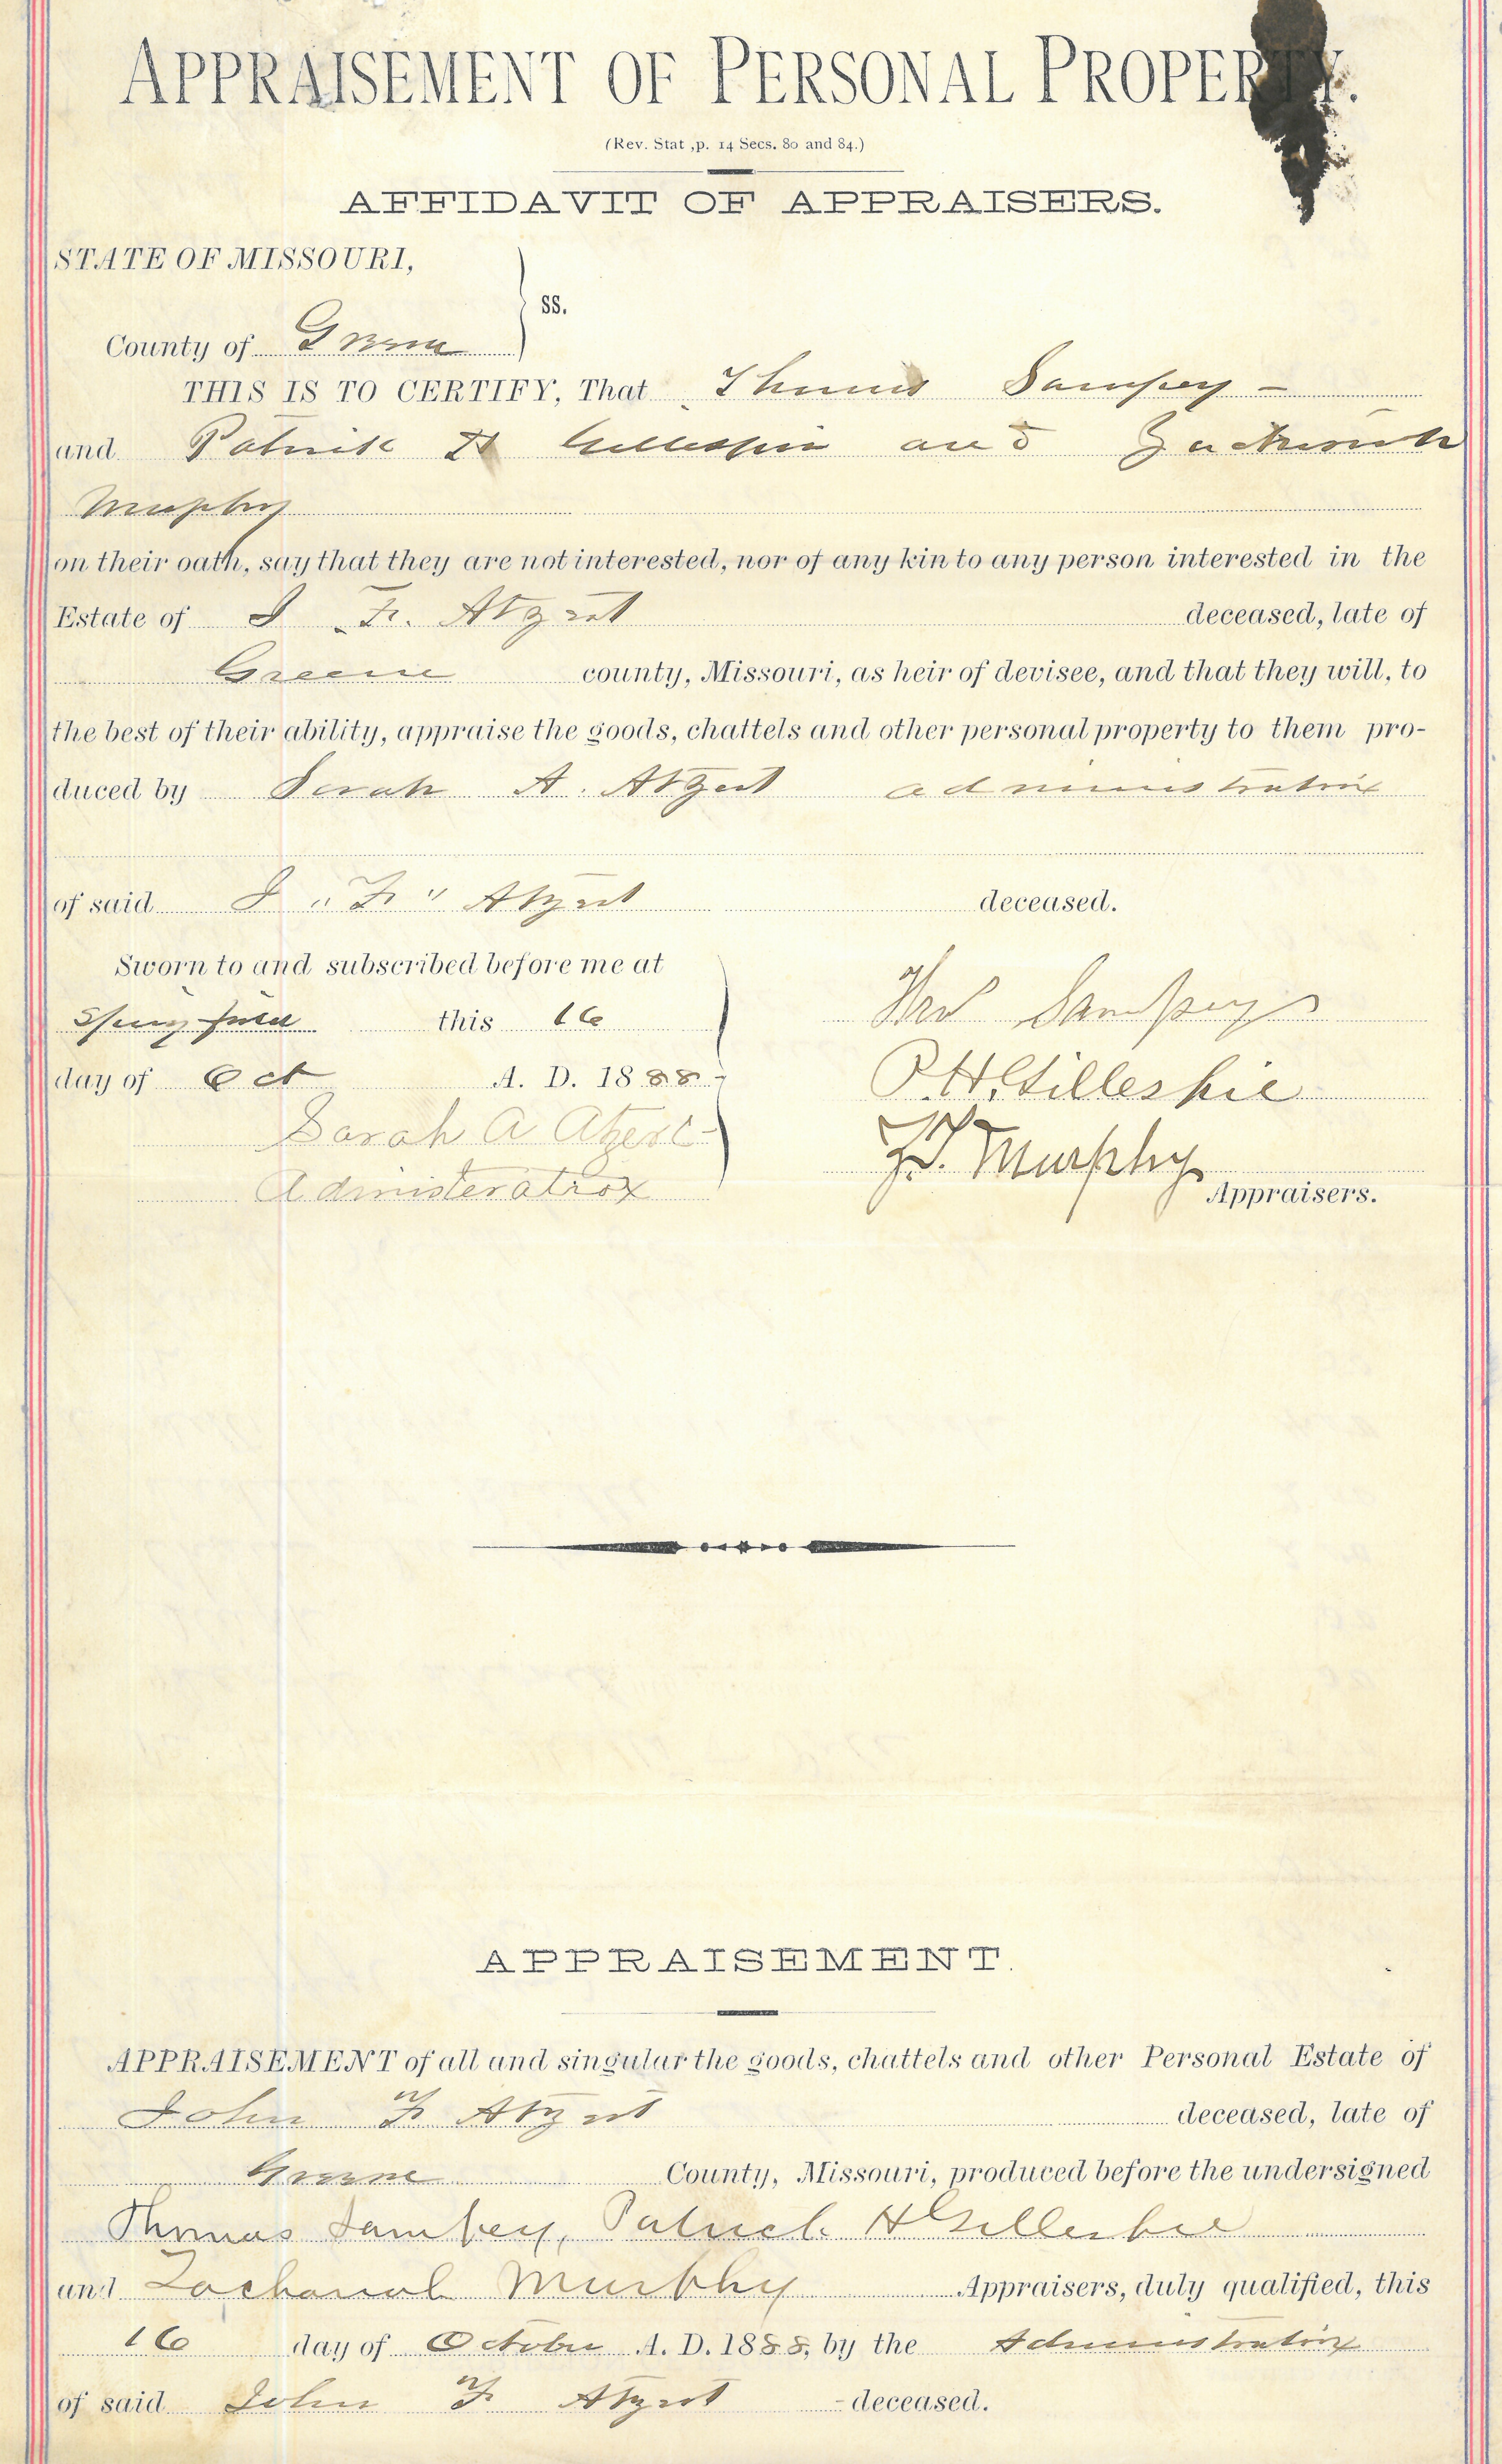 APPRAISEMENT OF PERSONAL PROPERTY.
(Rev. Stat ,p. 14 Secs. 80 and 84.)
AFFIDAVIT OF APPRAISERS.
STATE OF MISSOURI,
ss.
County of Greene
THIS IS TO CERTIFY, That Thomas Sampey –
and Patrick H Gillespie and
Murphy
on their oath, say that they are not interested, nor of any kin to any person interested in the
Estate of J. F. Atzert deceased, late of
Greene county, Missouri, as heir of devisee, and that they will, to
the best of their ability, appraise the goods, chattels and other personal property to them pro-
duced by Sarah A. Atzert administratrix
of said J "F" Atzert deceased.
Sworn to and subscribed before me at
Springfield this 16
day of Oct A. D. 1888
Sarah A Atzert
Administeratrox
Thos Sampey
P. H. Gillespie
Z. T. Murphy
Appraisers.
APPRAISEMENT.
APPRAISEMENT of all and singular the goods, chattels and other Personal Estate of
John F Atzert deceased, late of
Greene County, Missouri, produced before the undersigned
Thomas Sampey, Patrick H Gillespie
and Zachariah Murphy Appraisers, duly qualified, this
16 day of October A. D. 1888, by the Administratrix
of said John F Atzert deceased.